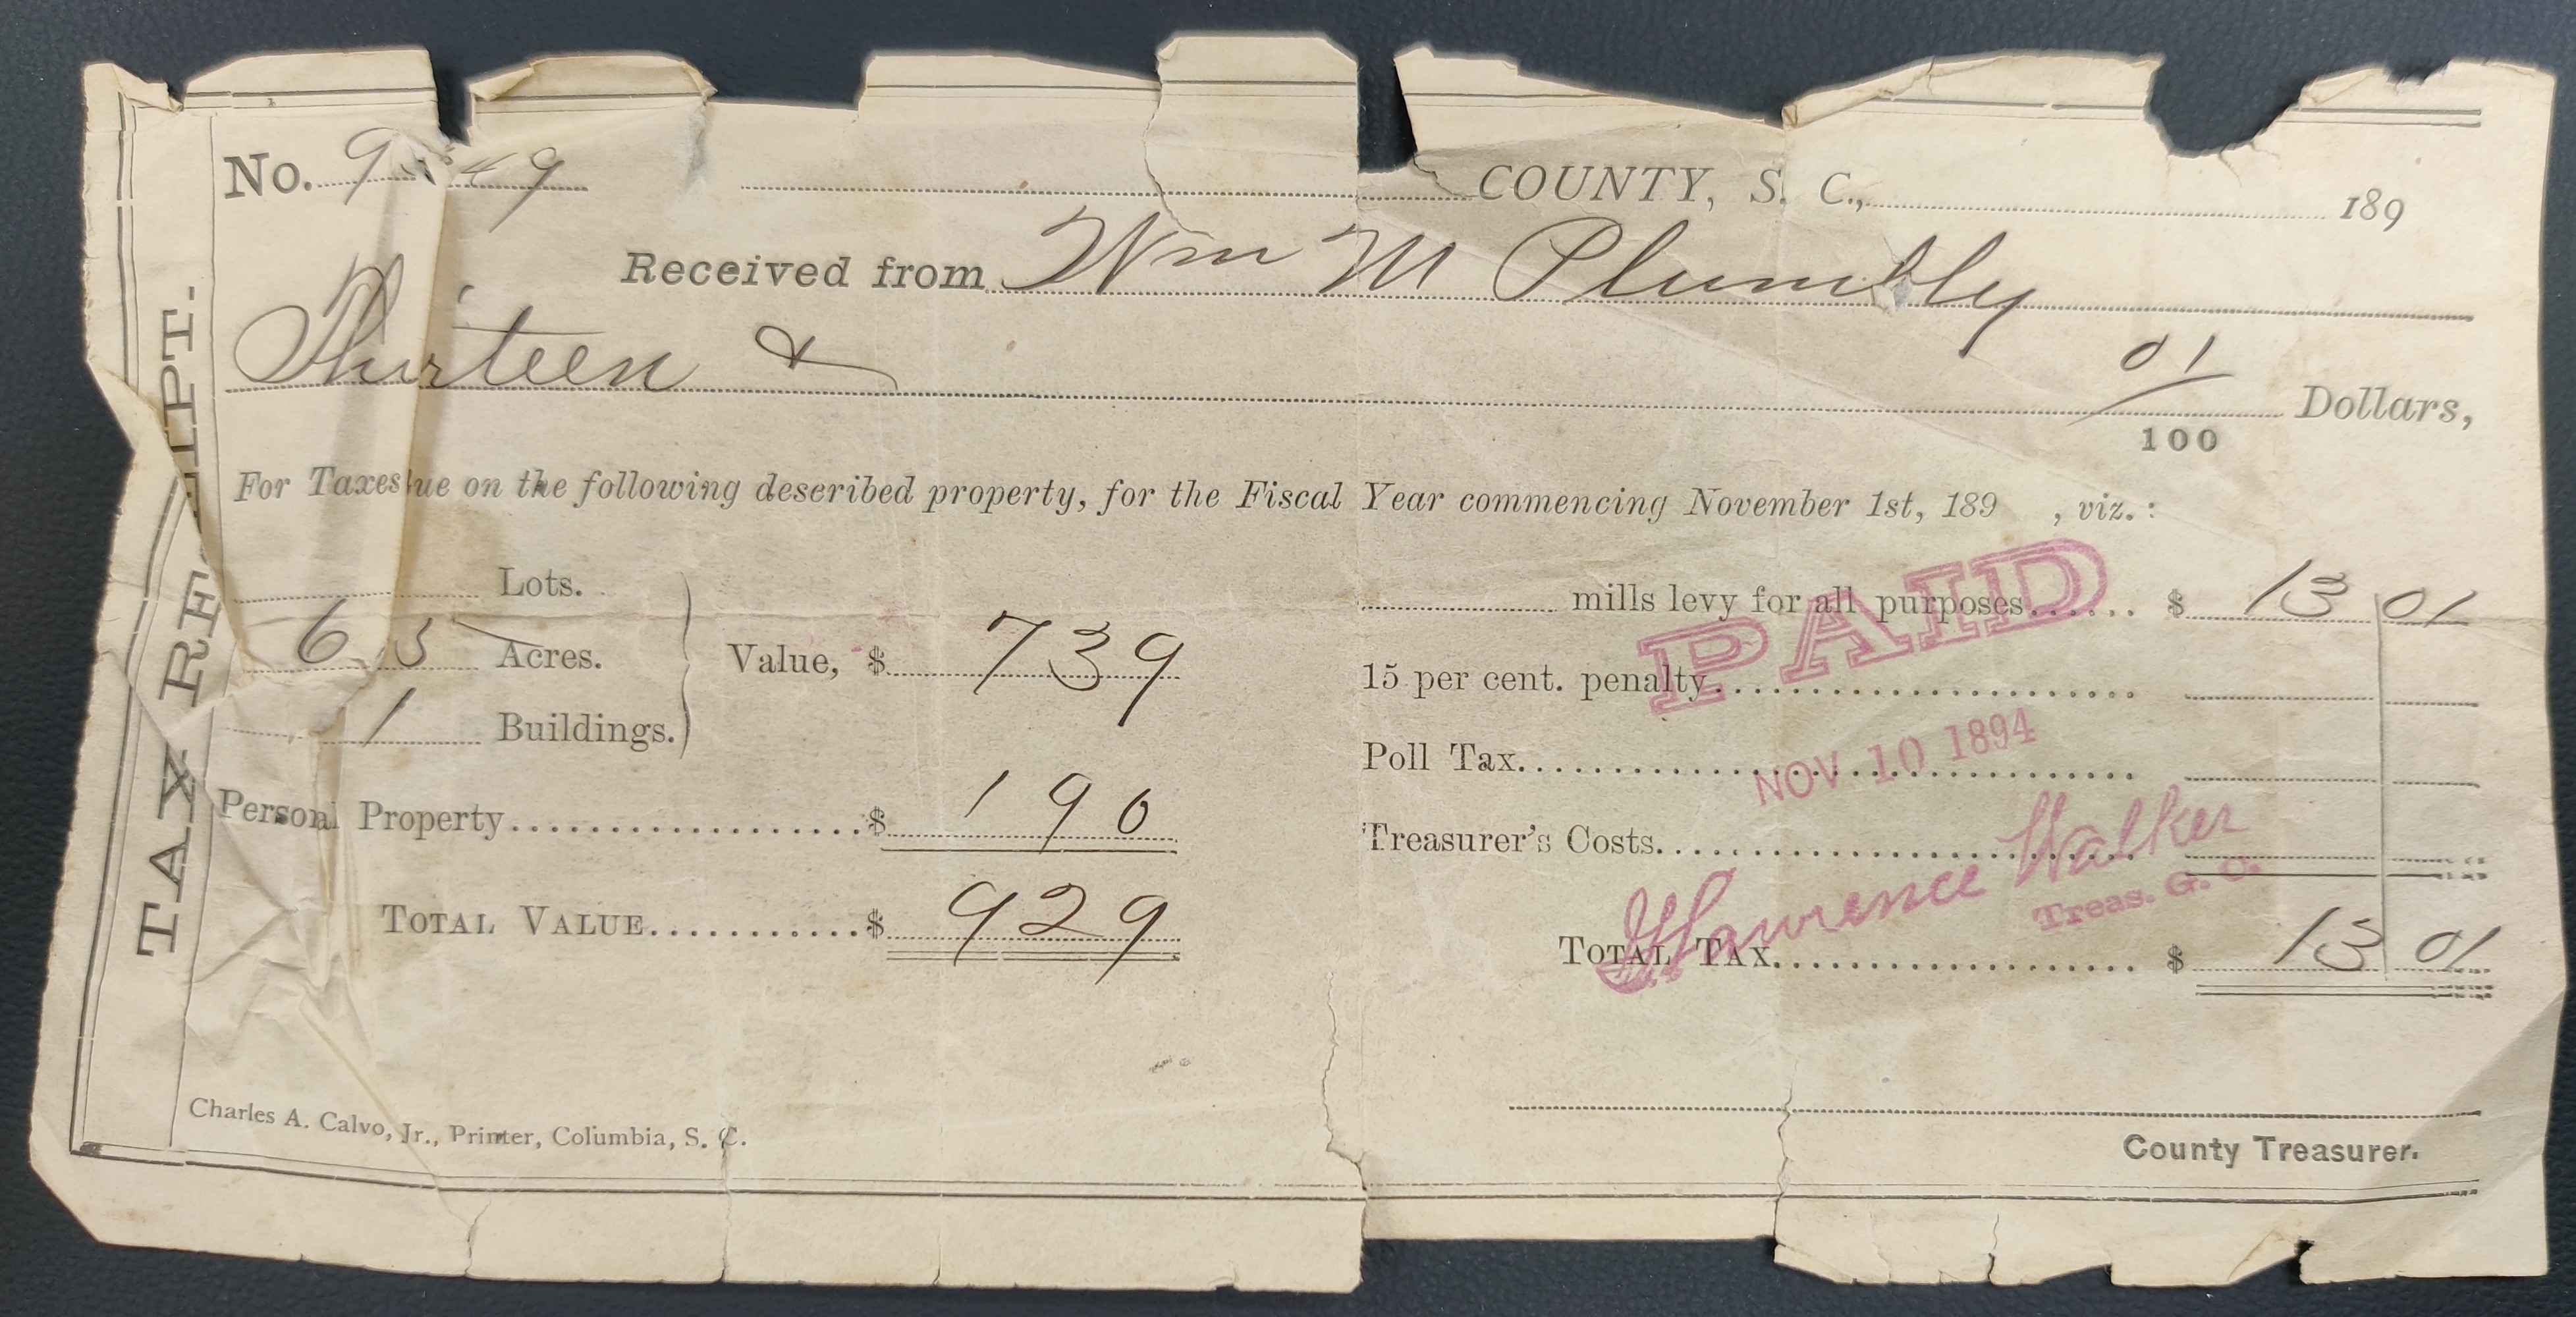 TAX RE IPT.
No. 9 49 COUNTY, S. C., 189
Received from Wm M Plumbly
Thirteen & 01/100 Dollars,
For Taxes ue on the following described property, for the Fiscal Year commencing November 1st, 189 , viz.:
Lots.
6 5 Acres.
1 Buildings.
Value, $ 739
Personal Property $ 190
TOTAL VALUE $ 929
mills levy for all purposes $ 13 01
15 per cent. penalty
Poll Tax
Treasurer's Costs
TOTAL TAX $ 13 01
PAID
NOV. 10 1894
Lawrence Walker
Treas. G. C.
County Treasurer.
Charles A. Calvo, Jr., Printer, Columbia, S. C.